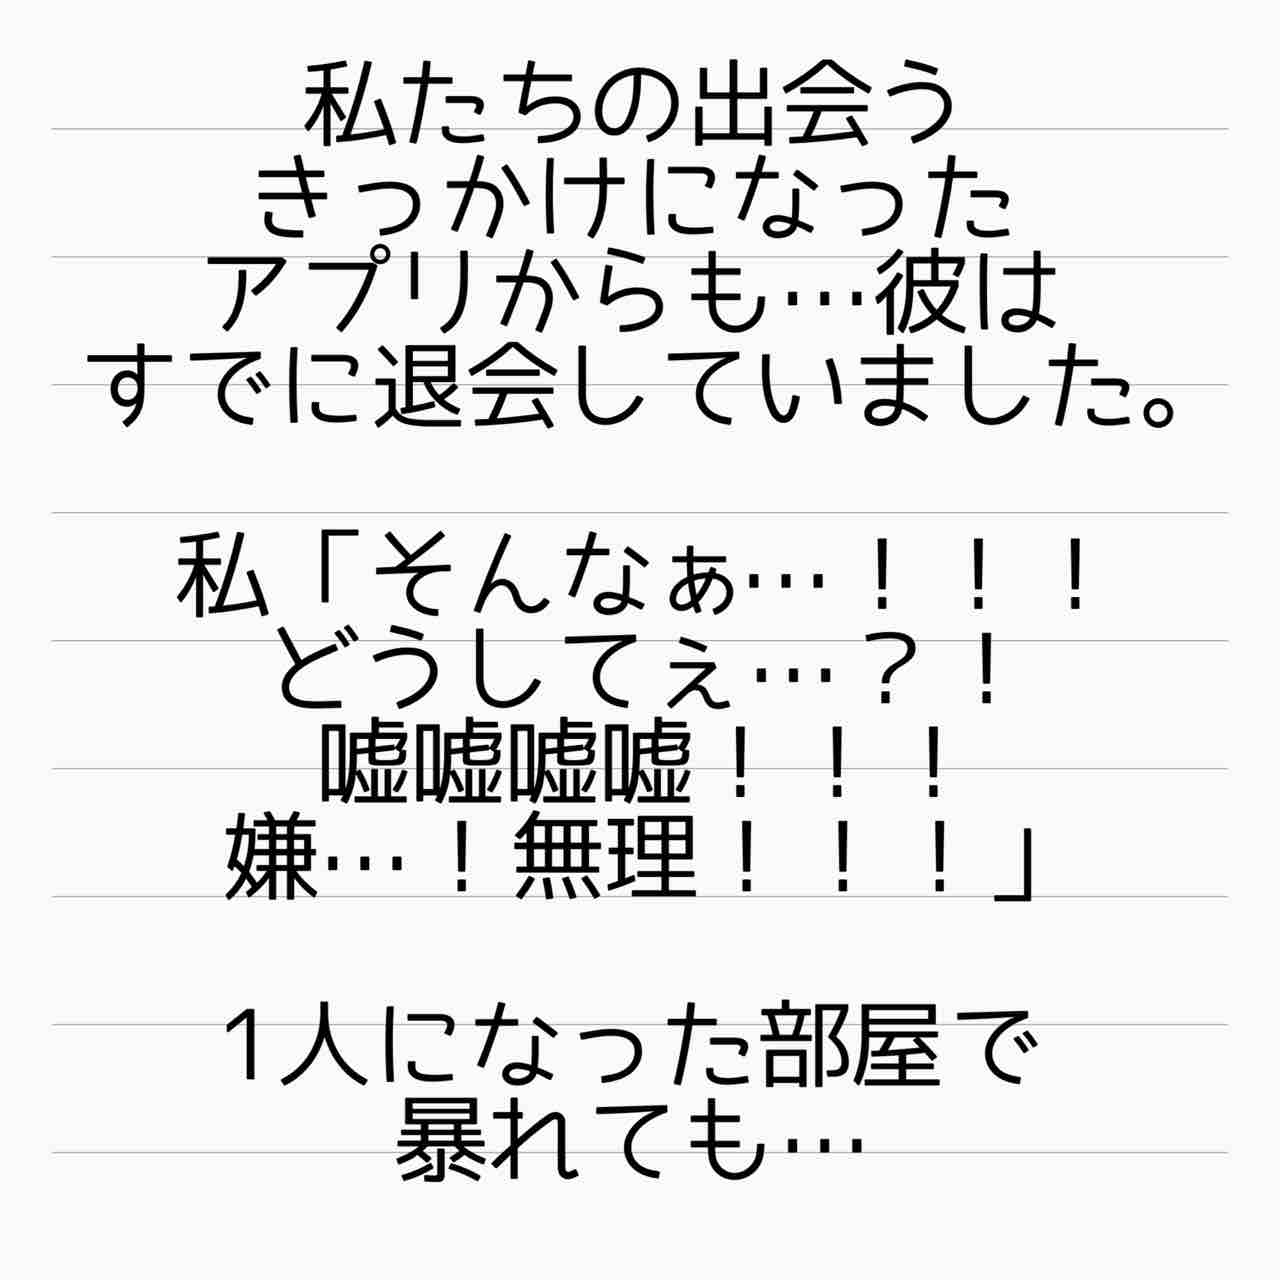 私たちの出会う
きっかけになった
アプリからも…彼は
すでに退会していました。
私「そんなぁ…！！！
どうしてぇ…？！
嘘嘘嘘嘘！！！
嫌…！無理！！！」
1人になった部屋で
暴れても…